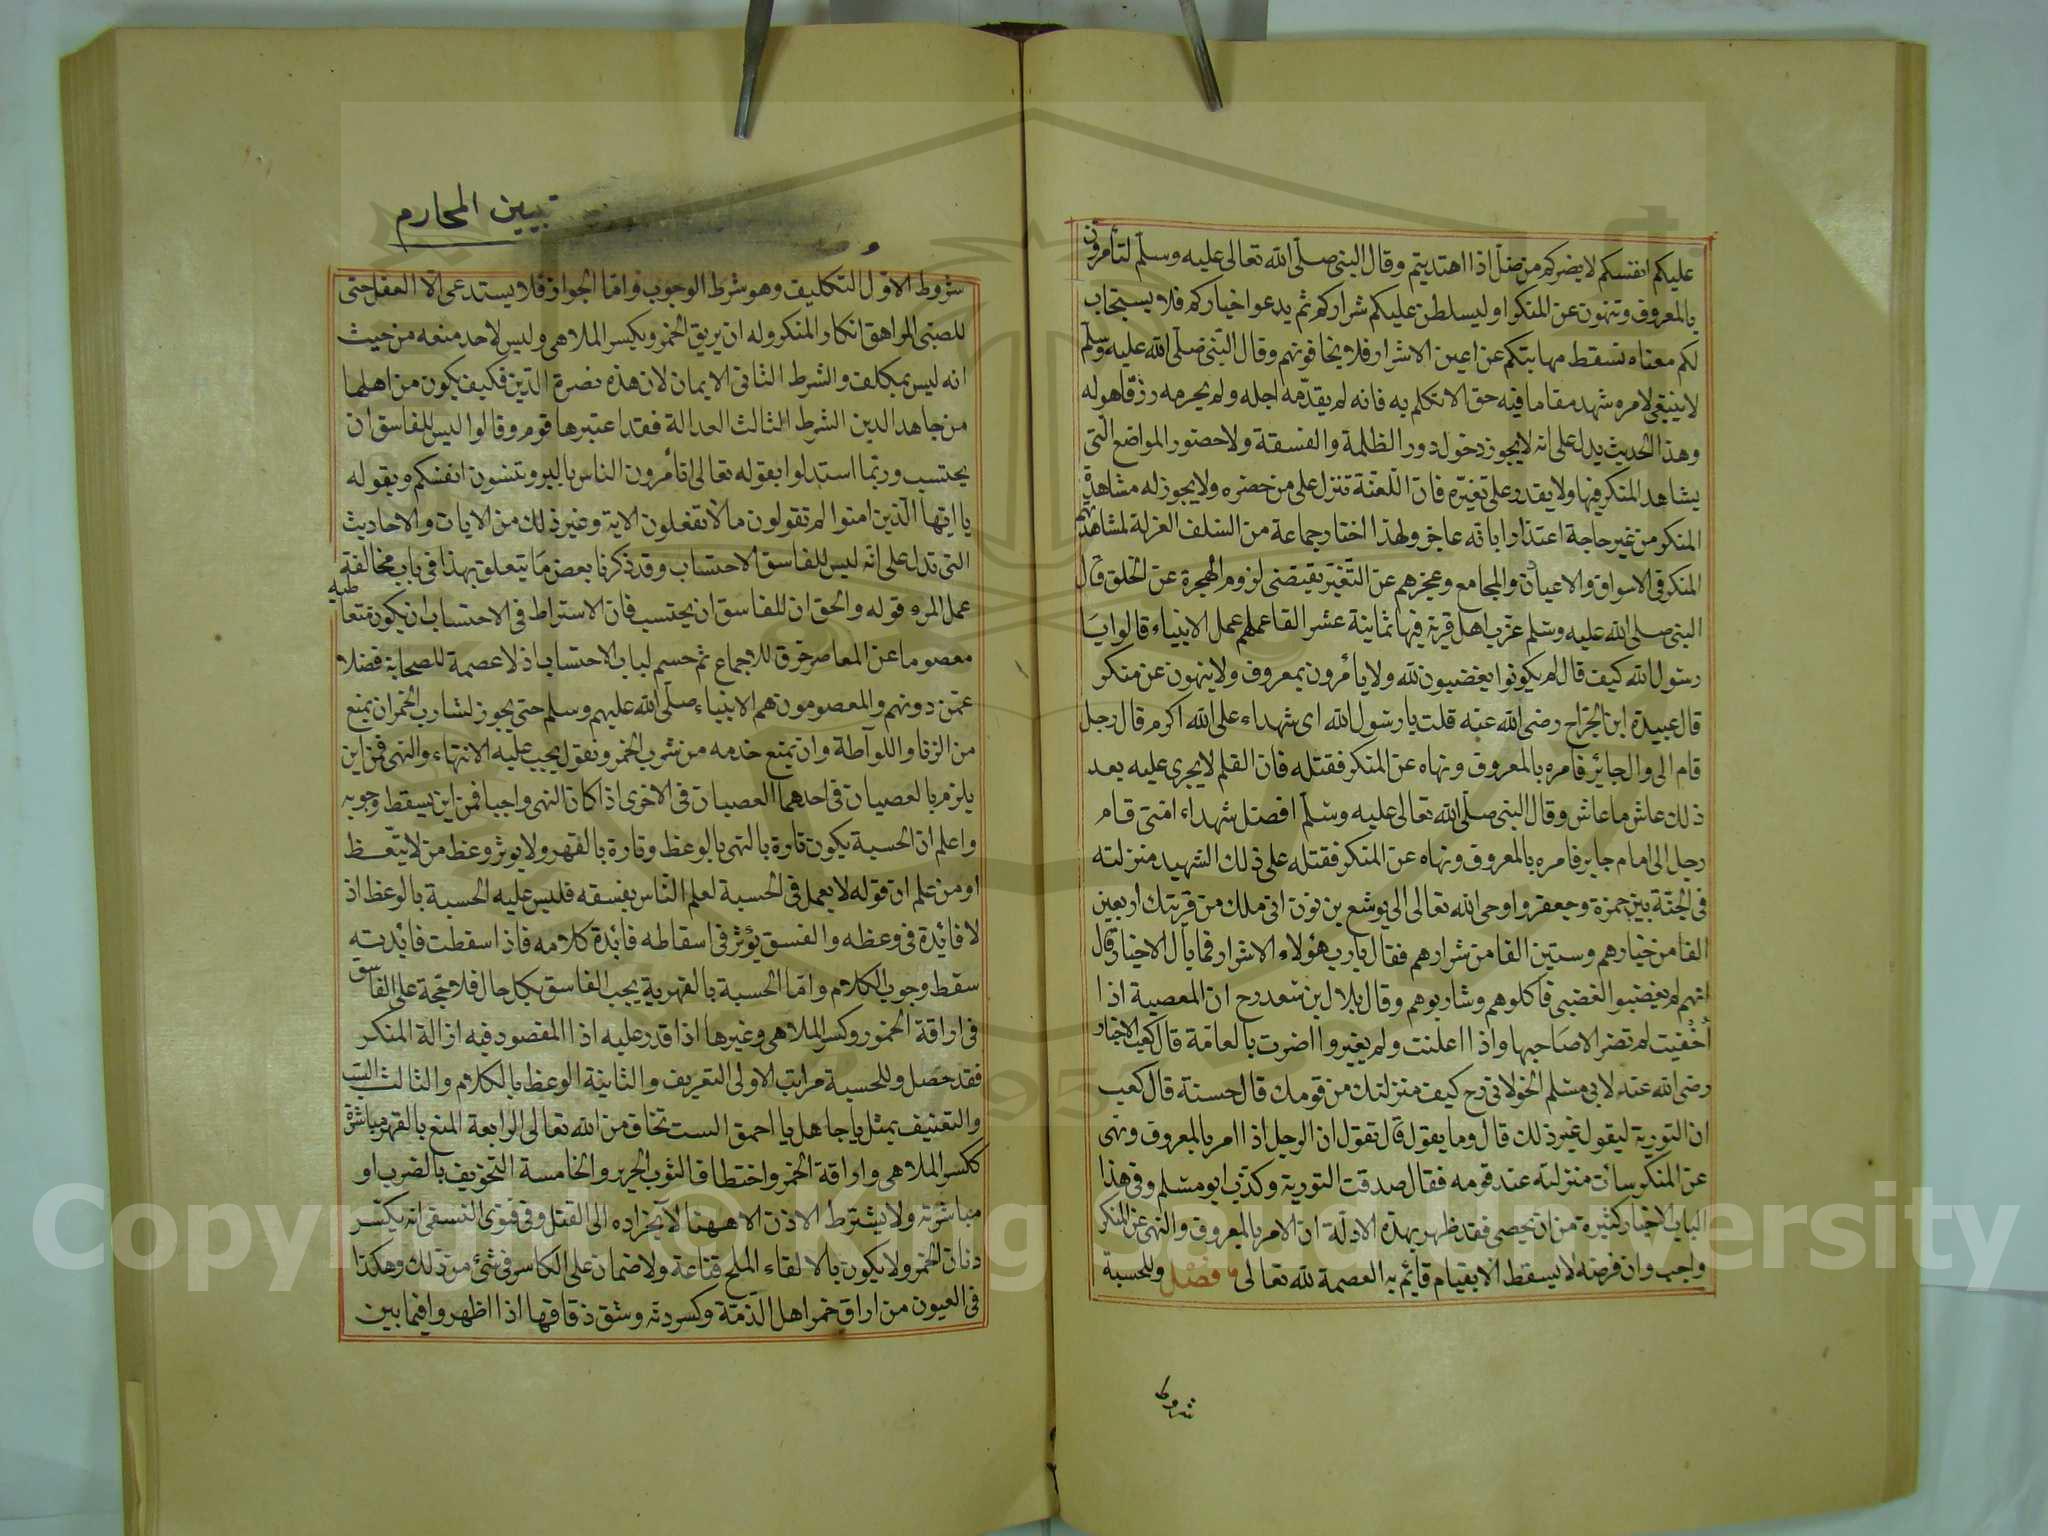 عليكم انفسكم لا يضركم من ضل اذا اهتديتم وقال النبى صلّى الله تعالى عليه وسلّم لتأمرون
بالمعروف وتنهون عن المنكر او ليسلطن عليكم شراركم ثم يدعوا خياركم فلا يستجاب
لكم معناه تسقط مهابتكم عن اعين الاشرار فلا يخافونهم وقال النّبى صلّى الله عليه وسلّم
لا ينبغى لامرء شهد مقاما فيه حق الا تكلم به فانه لم يقدّمه اجله ولم يحرمه رزقا هو له
وهذا الحديث يدل على انه لا يجوز دخول دور الظلمة والفسقة ولا حضور المواضع الّتى
يشاهد المنكر فيها ولا يقدر على تغيّره فان اللّعنة تنزل على من حضره ولا يجوز له مشاهدة
المنكر من غير حاجة اعتذارا بانّه عاجز ولهذا اختار جماعة من السّلف العزلة لمشاهدتهم
المنكر فى الاسواق والاعياد والمجامع وعجزهم عن التّغيّر يقتضى لزوم الهجرة عن الخلق قال
النبى صلى الله عليه وسلم عذّب اهل قرية فيها ثمانية عشر الفا عملهم عمل الانبياء قالوا يا
رسول الله كيف قال لم يكونوا يغضبون لله ولا يأمرون بمعروف ولا ينهون عن منكر
قال عبيدة ابن الجرّاح رضى الله عنه قلت يا رسول الله اى شهداء على الله اكرم قال رجل
قام الى وال جائر فامره بالمعروف ونهاه عن المنكر فقتله فان القلم لا يجرى عليه بعد
ذلك عاش ما عاش وقال النبى صلّى الله تعالى عليه وسلّم افضل شهداء امتى قام
رجل الى امام جاير فامره بالمعروف ونهاه عن المنكر فقتله على ذلك الشهيد منزلته
فى الجنّة بين حمزة وجعفر واوحى الله تعالى الى يوشع بن نون انى مهلك من قريتك اربعين
الفا من خيارهم وستين الفا من شرارهم فقال يارب هؤلاء الاشرار فما بال الاخيار قال
انهم لم يغضبوا الغضبى فاكلوهم وشاربوهم وقال بلال بن سعد رح ان المعصية اذا
اُخْفيت لم تضر الا صاحبها واذا اعلنت ولم يغيروا اضرت بالعامّة قال كعب الاحبار
رضى الله عنه لابى مسلم الخولانى رح كيف منزلتك من قومك قال حسنة قال كعب
ان التورية ليقول غير ذلك قال وما يقول قال تقول ان الرجل اذا امر بالمعروف ونهى
عن المنكر سائت منزلته عند قومه فقال صدقت التورية وكذّب ابو مسلم وفى هذا
الباب الاخبار كثيرة من ان يحصى فقد ظهر بهذه الادلّة ان الامر بالمعروف والنهى عن المنكر
واجب وان فرضه لا يسقط الا بقيام قائم به العصمة لله تعالى فصل وللحسبة
شروط
تبيين المحارم
شروط الاول التكليف وهو شرط الوجوب واما الجواز فلا يستدعى الا العقل حتى
للصبّى المراهق انكار المنكر وله ان يريق الخمر ويكسر الملاهى وليس لاحد منعه من حيث
انه ليس بمكلف والشرط الثانى الايمان لان هذه نصرة الدّين فكيف يكون من اهلها
من جاهد الدين الشرط الثالث العدالة فقد اعتبرها قوم وقالوا ليس للفاسق ان
يحتسب وربّما استدلوا بقوله تعالى اتأمرون الناس بالبر وتنسون انفسكم وبقوله
يا ايّها الّذين امنوا لم تقولون ما لا تفعلون الاية وغير ذلك من الايات والاحاديث
التى تدل على انّه ليس للفاسق الاحتساب وقد ذكرنا بعض ما يتعلق بهذا فى باب مخالفة
عمل المرء قوله والحق ان للفاسق ان يحتسب فان الاستراط فى الاحتساب ان يكون متعاطيه
معصوما عن المعاصى خرق للاجماع ثم حسم لباب الاحتساب اذ لا عصمة للصحابة فضلا
عمّن دونهم والمعصومون هم الانبياء صلّى الله عليهم وسلم حتى يجوز لشارب الخمر ان يمنع
من الزنا واللوآطة وان يمنع خدمه من شرب الخمر ونقول يجب عليه الانتهاء والنهى فمن اين
يلزم بالعصيان فى احدهما العصيان فى الاخرى اذا كان النهى واجبا فمن اين يسقط وجوبه
واعلم ان الحسبة يكون تارة بالنهى بالوعظ وتارة بالقهر ولا يوثر وعظ من لا يتّعظ
او من علم ان قوله لا يعمل فى الحسبة لعلم النّاس بفسقه فليس عليه الحسبة بالوعظ اذ
لا فائدة فى وعظه والفسق يؤثر فى اسقاطه فائدة كلامه فاذا سقطت فائدته
سقط وجوب الكلام وامّا الحسبة بالقهرية يجب الفاسق بكل حال فلا حجّة على الفاسق
فى اراقة الخمور وكسر الملاهى وغيرها اذا قدر عليه اذا المقصود فيه ازالة المنكر
فقد حصل وللحسبة مراتب الاولى التعريف والثانية الوعظ بالكلام والثالث السّب
والتعنيف بمثل يا جاهل يا احمق الست تخاف من الله تعالى الرابعة المنع بالقهر مباشرة
ككسر الملاهى واراقة الخمر واختطاف الثوب الحرير والخامسة التخويف بالضرب او
مباشرته ولا يشترط الاذن الا ههنا لانجراره الى القتل وفى فتوى النسفى انه يكسر
دنان الخمر ولا يكون بالالقاء الملح قناعة ولا ضمان على الكاسر فى شئ من ذلك وهكذا
فى العيون من اراق خمر اهل الذّمّة وكسر دنه وشق ذقاقها اذا اظهروا فيما بين
Copyright © King Saud University
1957